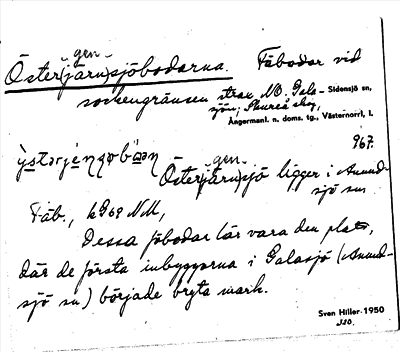 gen
Öster(järn)sjöbodarna. Fäbodar vid
sockengränsen strax NO. Gala- Sidensjö sn,
sjön;
Ångermanl. n. doms. tg., Västernorrl, l.
967.
gen
Öster(järn)sjö ligger i Anund-
sjö sn
Fäb., kG69 NM,
Dessa fäbodar lär vara den plats,
där de första inbyggarna i Galasjö (Anund-
sjö sn) började bryta mark.
Sven Hiller 1950